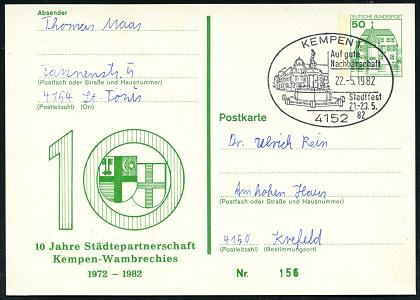 Absender
Thomas Maas
Tannenstr. 5
(Postfach oder Straße und Hausnummer)
4154 St. Tönis
(Postleitzahl) (Ort)
10
10 Jahre Städtepartnerschaft
Kempen-Wambrechies
1972 – 1982
KEMPEN 1
Auf gute
Nachbarschaft
22.-5.1982
Stadtfest
21.-23.5.
82
4152
50
DEUTSCHE BUNDESPOST
Postkarte
Dr. Ulrich Rein
Am hohen Haus
(Postfach oder Straße und Hausnummer)
4150 Krefeld
(Postleitzahl) (Bestimmungsort)
Nr. 156